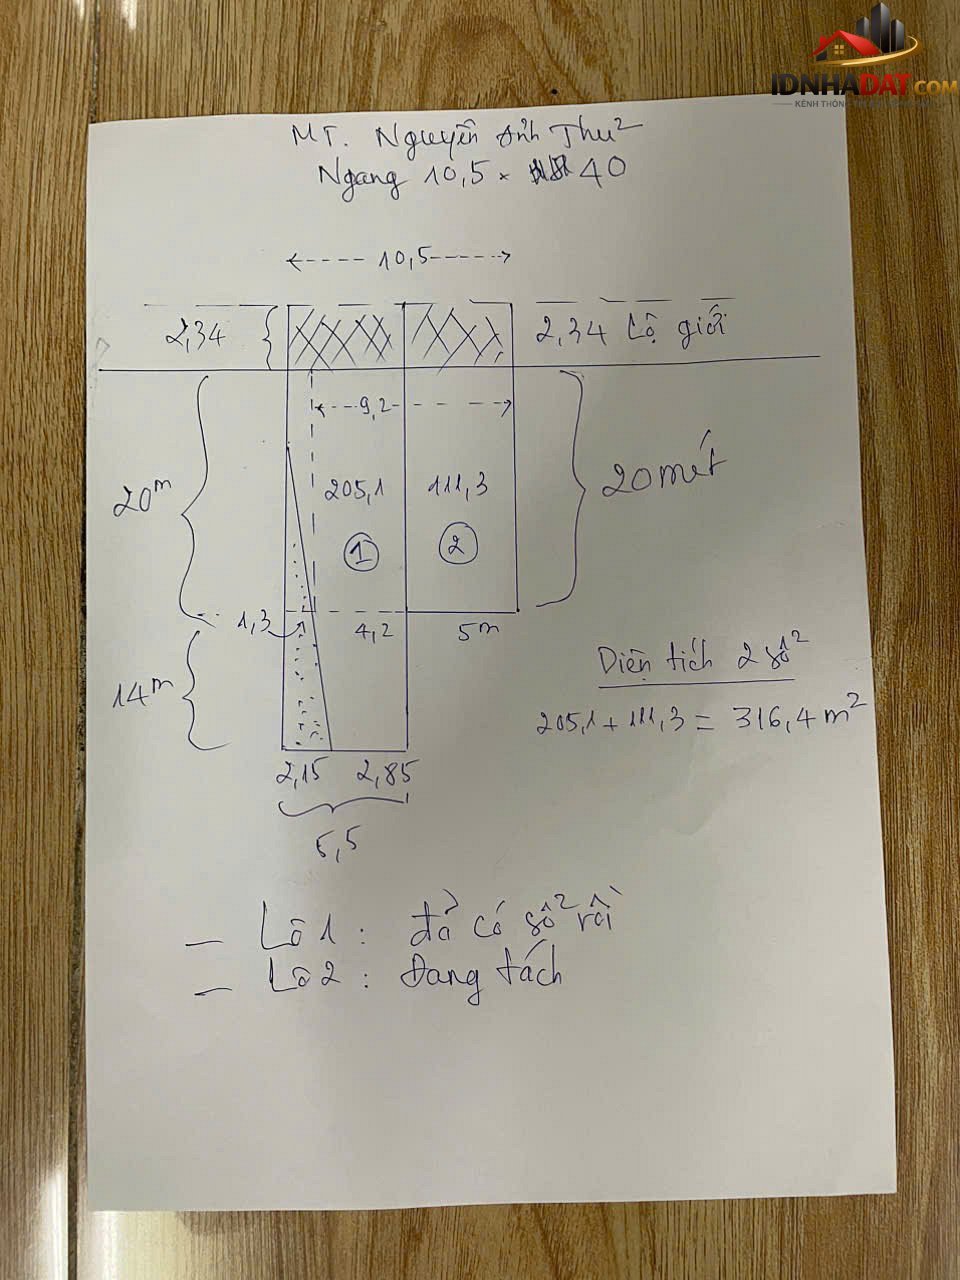 IDNHADAT.COM
MT. Nguyễn Ảnh Thu
Ngang 10,5 × 40
10,5
2,34
2,34 Lộ giới
9,2
20m
205,1
111,3
20 mét
1
2
1,3
4,2
5m
14m
Diện tích 2 sổ
205,1 + 111,3 = 316,4 m²
2,15
2,85
5,5
– Lô 1 : đả có sổ rồi
– Lô 2 : Đang tách